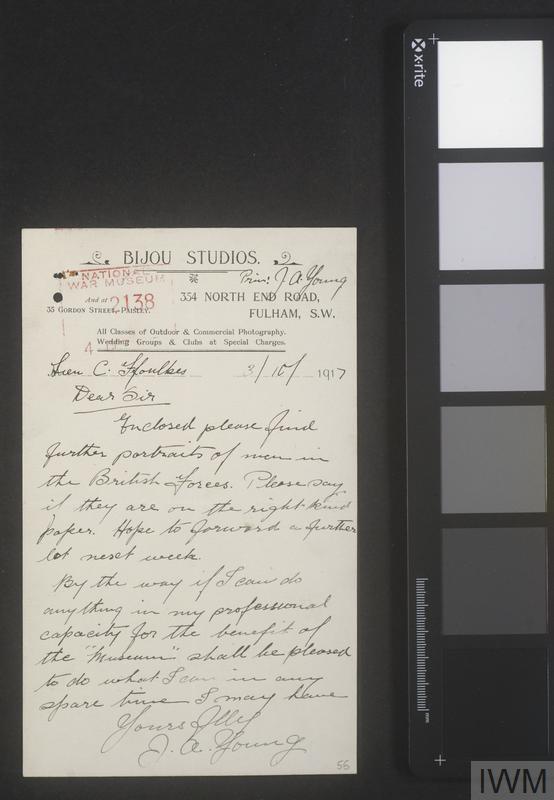 BIJOU STUDIOS.
Prin: J. A. Young
NATIONAL
WAR MUSEUM
2138
4
And at
35 GORDON STREET, PAISLEY.
354 NORTH END ROAD,
FULHAM, S.W.
All Classes of Outdoor & Commercial Photography.
Wedding Groups & Clubs at Special Charges.
C. Ffoulkes 3/10/1917
Dear Sir
Enclosed please find
further portraits of men in
the British Forces. Please say
if they are on the right kind
paper. Hope to forward a further
lot next week.
By the way if I can do
anything in my professional
capacity for the benefit of
the "Museum" shall be pleased
to do what I can in any
spare time I may have
Yours fflly
J. A. Young
56
x-rite
mm
IWM